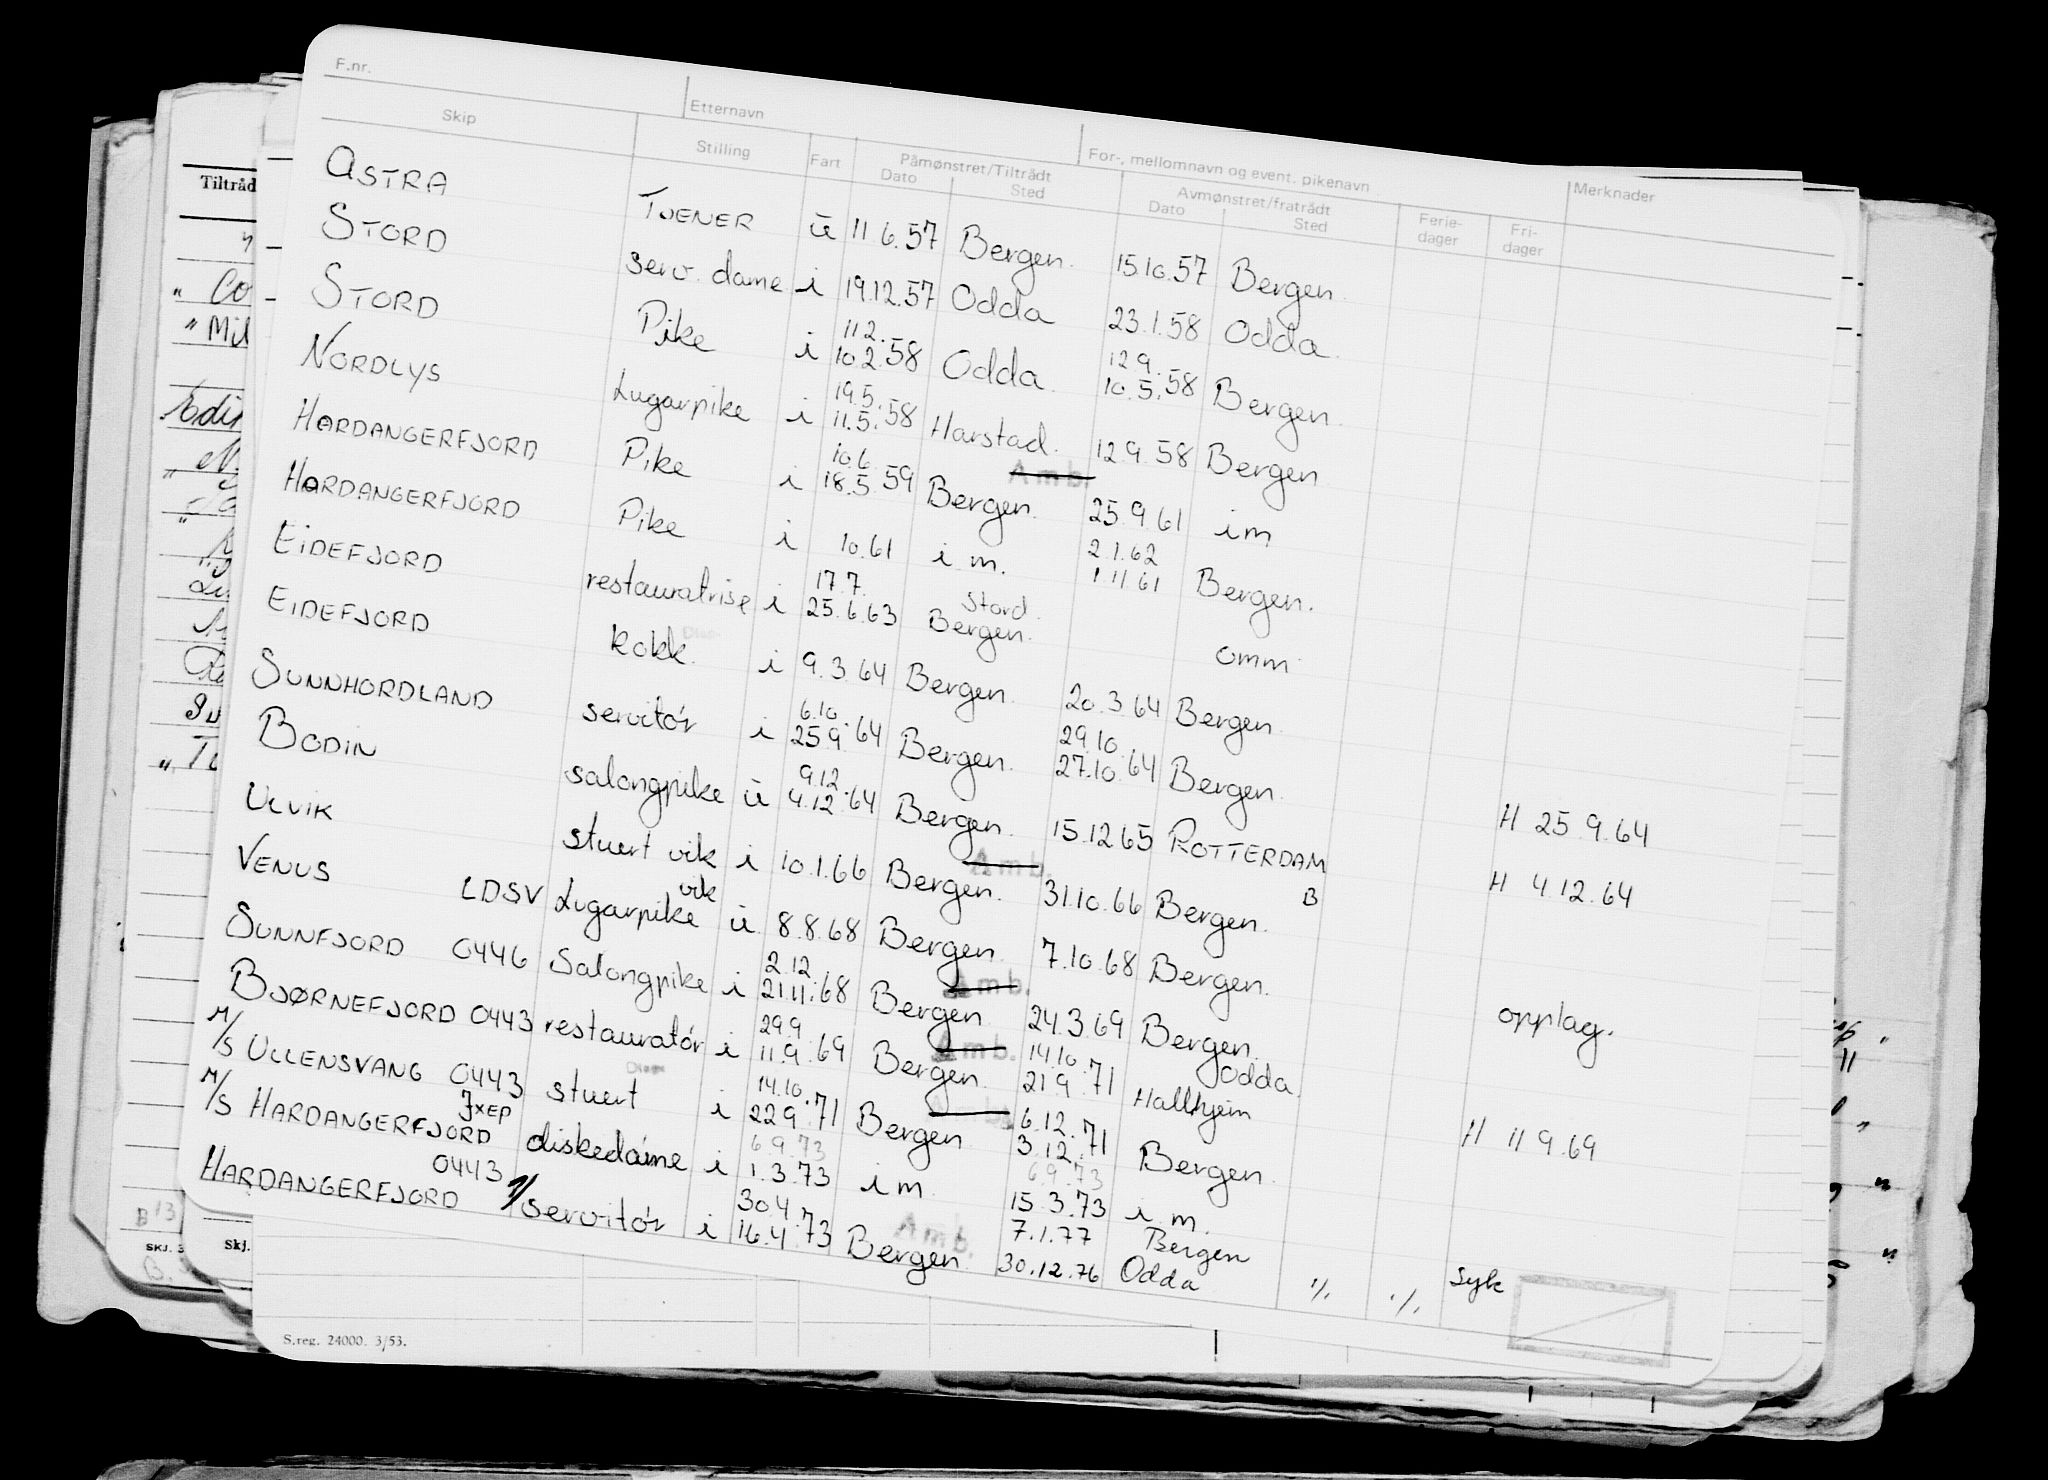 F.nr.
Etternavn
For-, mellomnavn og event. pikenavn
Skip Stilling Fart Påmønstret/Tiltrådt Avmønstret/fratrådt Ferie-dager Fri-dager Merknader
Dato Sted Dato Sted
ASTRA TJENER u 11 6.57 Bergen. 15.10.57 Bergen.
STORD serv. dame i 19.12.57 Odda 23.1.58 Odda.
11 2.
12 9.
STORD Pike i 10.2.58 Odda. 10.5.58 Bergen.
19.5.
NORDLYS Lugarpike i 11.5.58 Harstad. 12.9.58 Bergen
10.6. Amb.
HARDANGERFJORD Pike i 18.5.59 Bergen. 25.9.61 i m
2.1.62
HARDANGERFJORD Pike i 10.61 i m. 1 11 61 Bergen.
17.7. Stord.
EIDEFJORD restauratrise i 25.6.63 Bergen. omm
EIDEFJORD kokk. i 9.3.64 Bergen. 20.3.64 Bergen.
6.10. 29.10.
SUNNHORDLAND servitør i 25.9.64 Bergen. 27.10.64 Bergen. H 25.9.64
9.12.
BODIN salongpike u 4.12.64 Bergen. 15.12.65 ROTTERDAM H 4.12.64
Amb. B
ULVIK stuert vik i 10.1.66 Bergen. 31.10.66 Bergen.
vik
VENUS LDSV Lugarpike u 8.8.68 Bergen. 7.10.68 Bergen.
2.12. Amb.
SUNNFJORD 0446 Salongpike i 21.11.68 Bergen. 24.3.69 Bergen. opplag.
29.9. Amb. 14.10. Odda.
BJØRNEFJORD 0443 restauratør i 11.9.69 Bergen. 21.9.71 Halhjem H 11 9.69
14.10. 6.12.
M/S ULLENSVANG 0443 stuert i 22.9.71 Bergen 3.12.71 Bergen.
JXEP 6.9.73 6.9.73
M/S HARDANGERFJORD diskedame i 1.3.73 i m. 15.3.73 i m.
0443 30.4. Amb. 7.1.77 Bergen
HARDANGERFJORD servitør i 16.4.73 Bergen. 30.12.76 Odda ./. ./. Syk
S.reg. 24000. 3/53.
Tiltråd
SKJ.
Skj.